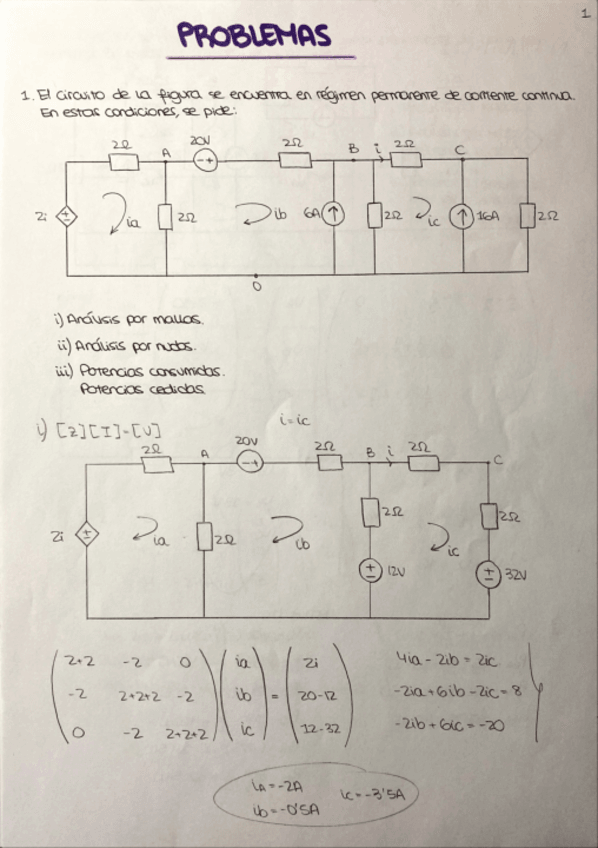 1
PROBLEMAS
1. El circuito de la figura se encuentra en régimen permanente de corriente continua.
En estas condiciones, se pide:
2Ω A 20V 2Ω B i 2Ω C
-+
2i ± ia 2Ω ib 6A 2Ω ic 16A 2Ω
0
i) Análisis por mallas.
ii) Análisis por nudos.
iii) Potencias consumidas.
Potencias cedidas
i) [Z][I]=[U] i=ic
2Ω A 20V 2Ω B i 2Ω C
-+
2Ω 2Ω
2i ± ia 2Ω ib ic
± 12V ± 32V
2+2 -2 0 ia 2i 4ia - 2ib = 2ic
-2 2+2+2 -2 ib = 20-12 -2ia + 6ib - 2ic = 8
0 -2 2+2+2 ic 12-32 -2ib + 6ic = -20
iA = -2A ic = -3'5A
ib = -0'5A